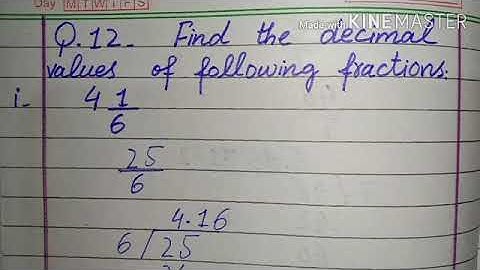 Day M T W T F S
Made with KINEMASTER
Q.12- Find the decimal
values of following fractions.
i- 4 1/6
25/6
4.16
6 25